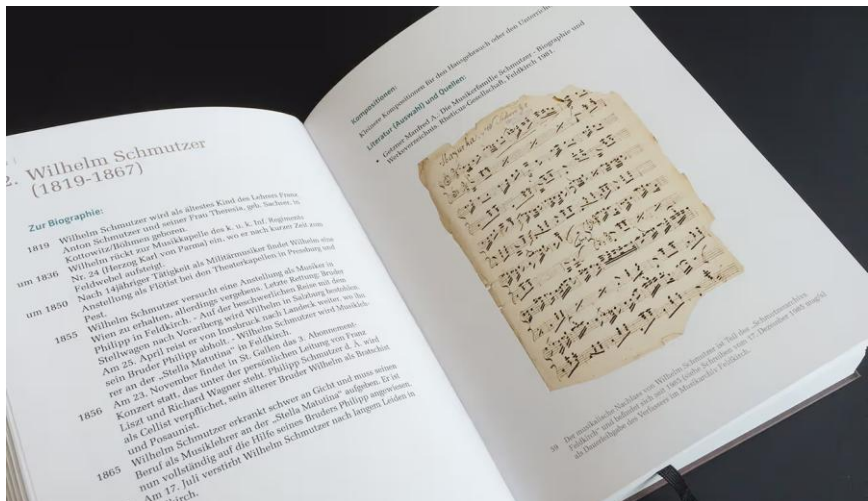 2. Wilhelm Schmutzer
(1819-1867)
Zur Biographie:
1819 Wilhelm Schmutzer wird als ältestes Kind des Lehrers Franz
Anton Schmutzer und seiner Frau Theresia, geb. Sacher, in
Kottowitz/Böhmen geboren.
um 1836 Wilhelm rückt zur Musikkapelle des k. u. k. Inf. Regiments
Nr. 24 (Herzog Karl von Parma) ein, wo er nach kurzer Zeit zum
Feldwebel aufsteigt.
um 1850 Nach 14jähriger Tätigkeit als Militärmusiker findet Wilhelm eine
Anstellung als Flötist bei den Theaterkapellen in Pressburg und
Pest.
1855 Wilhelm Schmutzer versucht eine Anstellung als Musiker in
Wien zu erhalten, allerdings vergebens. Letzte Rettung: Bruder
Philipp in Feldkirch. - Auf der beschwerlichen Reise mit dem
Stellwagen nach Vorarlberg wird Wilhelm in Salzburg bestohlen.
Am 25. April reist er von Innsbruck nach Landeck weiter, wo ihn
sein Bruder Philipp abholt. - Wilhelm Schmutzer wird Musikleh-
rer an der „Stella Matutina" in Feldkirch.
1856 Am 23. November findet in St. Gallen das 3. Abonnement-
Konzert statt, das unter der persönlichen Leitung von Franz
Liszt und Richard Wagner steht. Philipp Schmutzer d. Ä. wird
als Cellist verpflichtet, sein älterer Bruder Wilhelm als Bratschist
und Posaunist.
1865 Wilhelm Schmutzer erkrankt schwer an Gicht und muss seinen
Beruf als Musiklehrer an der „Stella Matutina" aufgeben. Er ist
nun vollständig auf die Hilfe seines Bruders Philipp angewiesen.
Am 17. Juli verstirbt Wilhelm Schmutzer nach langem Leiden in
Kompositionen:
Kleinere Kompositionen für den Hausgebrauch oder den
Literatur (Auswahl) und Quellen:
• Getzner Manfred A.: Die Musikerfamilie Schmutzer - Biographie und
Werksverzeichnis. Rheticus-Gesellschaft, Feldkirch 1981.
Mazurka
Der musikalische Nachlass von Wilhelm Schmutzer ist Teil des „Schmutzerarchivs
Feldkirch" und befindet sich seit 1985 (siehe Schreiben vom 17. Dezember 1985
als Dauerleihgabe des Verfassers im Musikarchiv Feldkirch.